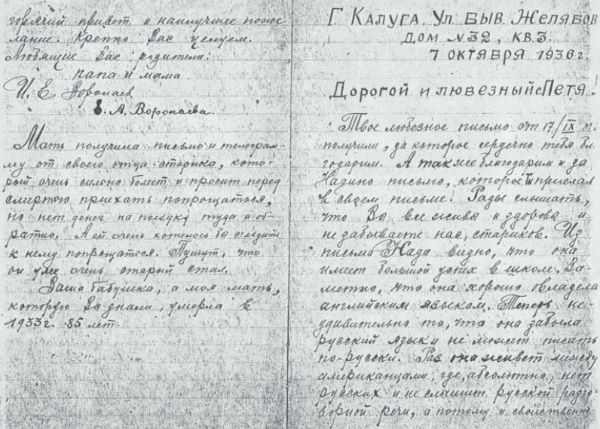 горячий привет и наилучшие поже
лание. Крепко Вас целуем.
Любящие Вас родители:
папа и мама
И. Е. Воропаев
Е. А. Воропаева.
Мать получила письмо и телеграм
му от своего отца старика, кото-
рый очень сильно болет и просит перед
смертью приехать попрощаться,
но нет денег на поездку туда и об-
ратно. А ей очень хотелось бы съездить
к нему попрощаться. Пишут, что
он уже очень старой стал.
Ваша бабушка, а моя мать,
которую Вы знали, умерла в
1933г. 85 лет.
Г. Калуга. Ул. Быв. Желябов
дом №32, кв.3.
7 октября 1936г.
Дорогой и любезный Петя!
Твое любезное письмо от 17/IX м.
получили, за которое сердечно тебя бл.
годарим. А также благодарим и за
Надино письмо, которое ты прислал
в своем письме. Рады слышать,
что Вы все живы и здоровы и
не забываете нас, стариков. Из
письма Нади видно, что она
имеет большой успех в школе. За-
метно, что она хорошо овладела
английским языком. Теперь не-
удивительно то, что она забыла
русский язык и не может писать
по-русски. Раз она живет между
американцами, где, абсолютно, нет
русских и не слышит русской разго
ворной речи, а потому и свойственно